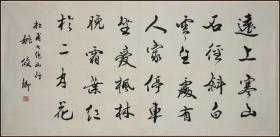 遠上寒山
石徑斜白
雲生處有
人家停車
坐愛楓林
晚霜葉红
於二月花
杜牧七绝山行
姚俊卿